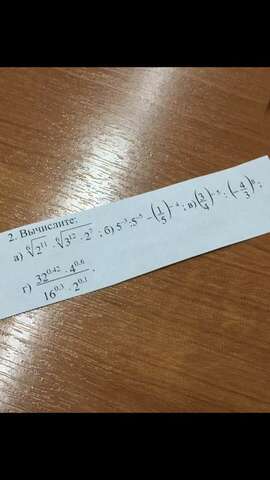 2. Вычислите:
а) ⁶√2¹¹ · ⁶√3¹² · 2⁷ ; б) 5⁻³:5⁻⁵ − (1/5)⁻⁴ ; в) (3/4)⁻⁵ : (−4/3)⁶ ;
г) (32^0.42 · 4^0.6)/(16^0.3 · 2^0.1) .